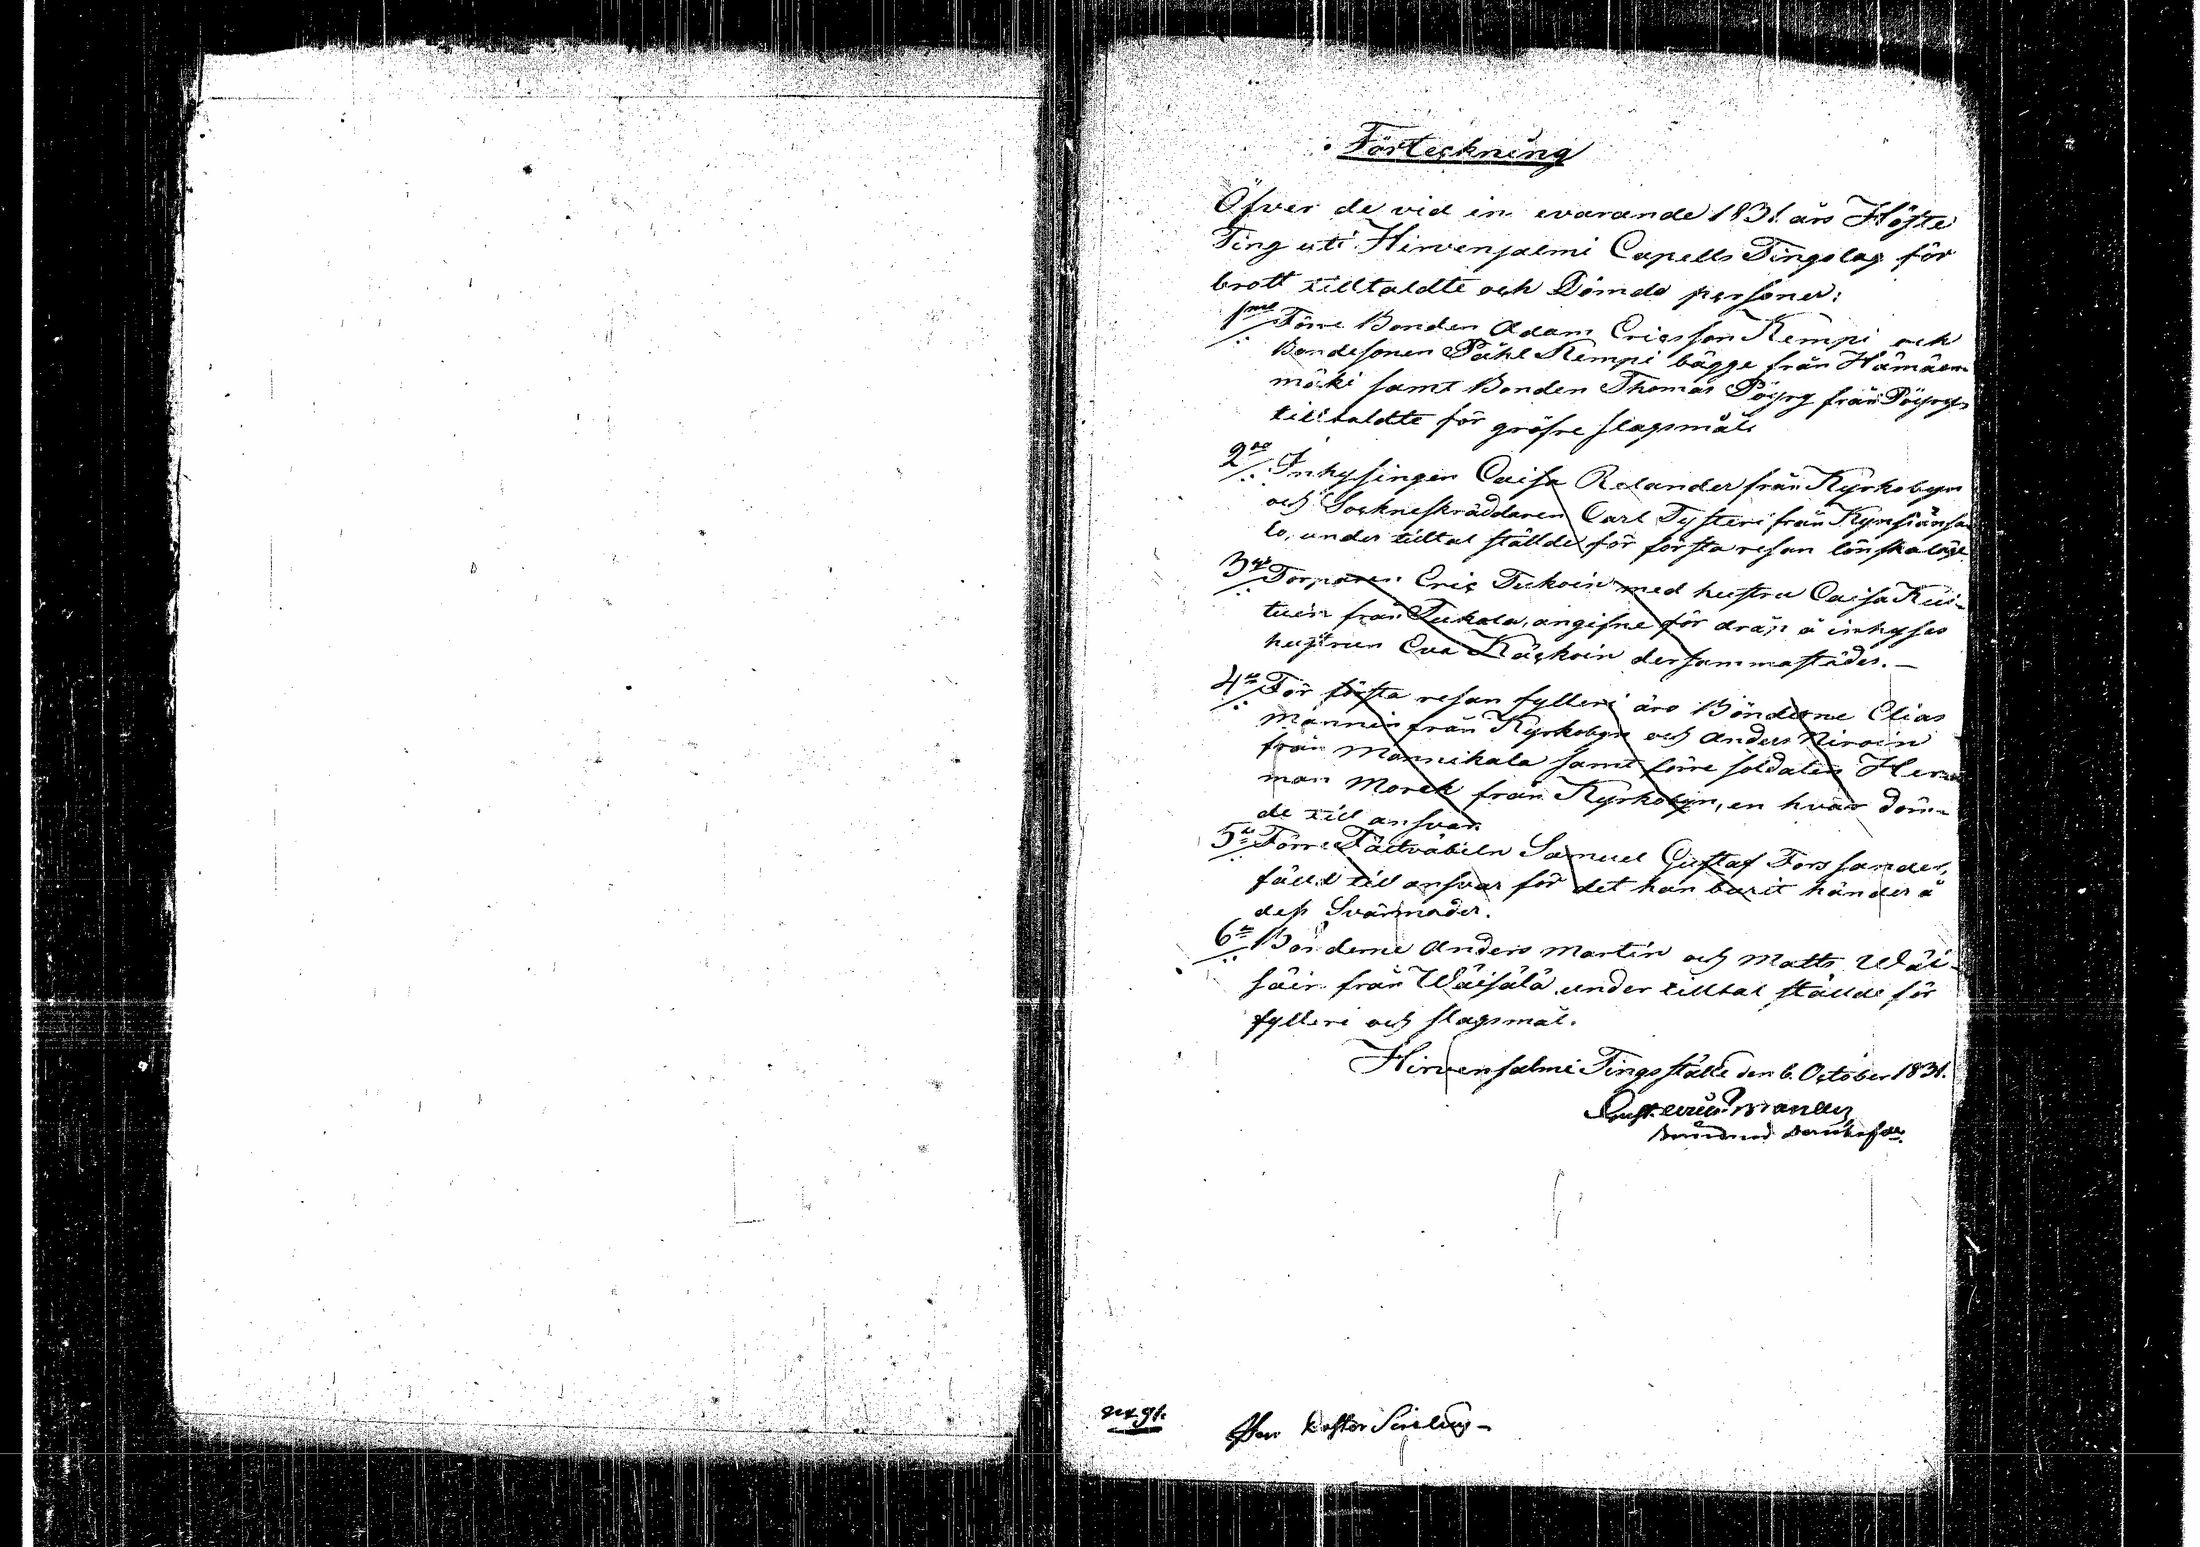 Förteckning
Öfver de vid in evarande 1831 års Höste
Ting uti Hirvensalmi Capells Tingslag för
brott tilltaldte och Dömde personer:
1mo Förre Bonden Adam Ericsson Kempi och
Bondesonen Påhl Kempi bägge från Hämäen
mäki samt Bonden Thomas Pöyry från Pöyry
tilltaldte för gröfre slagsmål.
2do Inhysingen Caisa Relander från Kyrkobyn
och Sockneskräddaren Carl Tysteri från Kynsiänsa
lo, under tilltal ställde för första resan lönskaläge.
3o Torparen Eric Tukoin med hustru Caisa Kui-
tuin från Tukala, angifne för dråp å inhyses
hustrun Eva Käckoin dersammastädes. —
4o För första resan fylleri äro Bönderne Elias
Männin från Kyrkobyn och Anders Niroin
från Mannikala samt förre soldaten Her
man Morek från Kyrkobyn, en hvar döm-
de till ansvar.
5o Förre Fältväbeln Samuel Gustaf Forssander,
fälld till ansvar för det han burit händer å
dess Svärmoder.
6o Bönderne Anders Martin och Matts Wäi-
säin från Wäisälä under tilltal ställde för
fylleri och slagsmål.
Hirvensalmi Tingsställe den 6. October 1831.
Gust.
91.
Herr Pastor